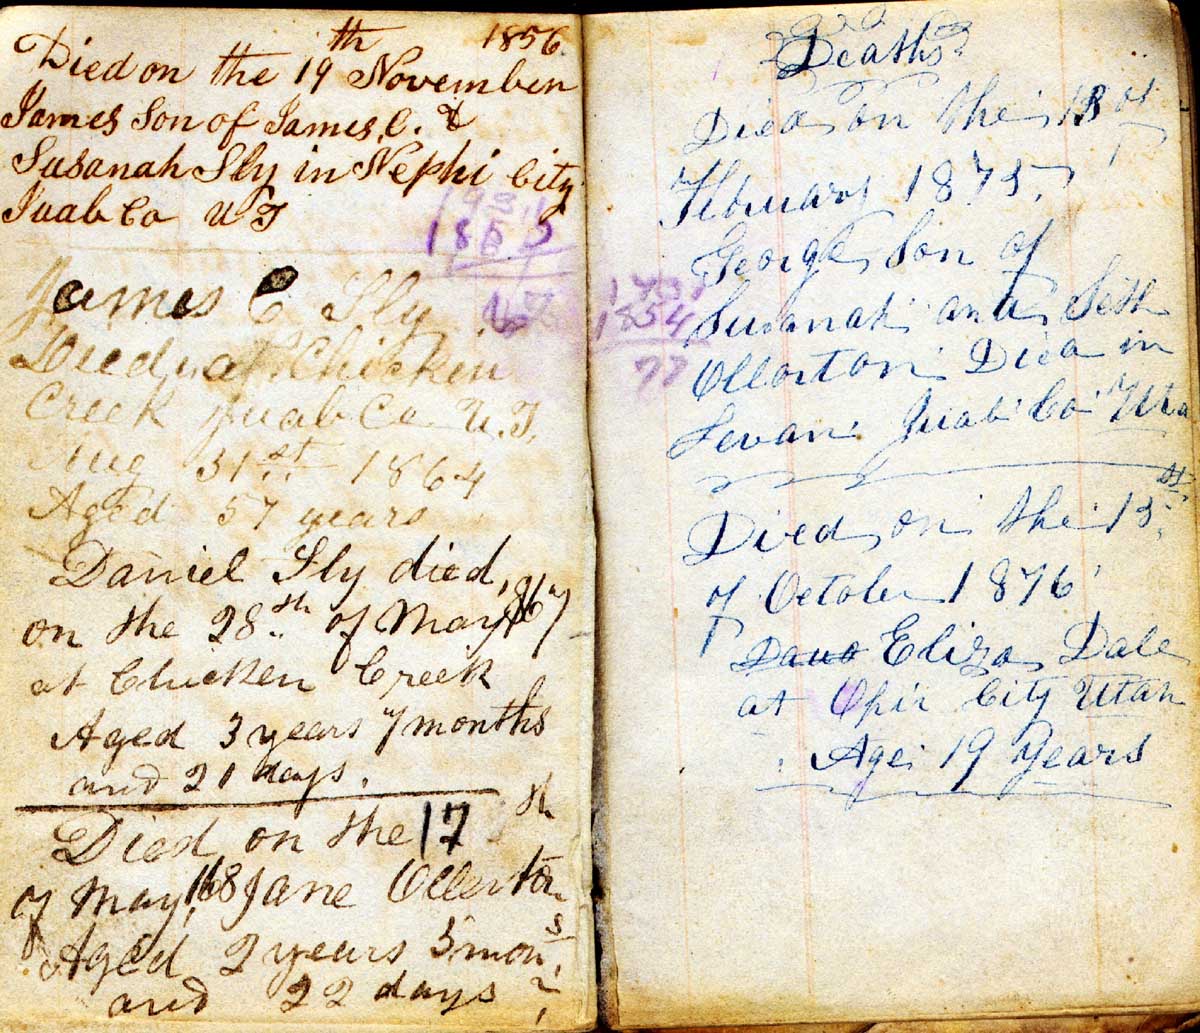 1856
Died on the 19th November
James Son of James C. &
Susanah Sly in Nephi City
Juab Co U T
1855
James C Sly
Died at Chicken
Creek Juab Co U.T.
Aug 31st 1864
Aged 57 years
Daniel Sly died,
on the 28th of May 1867
at Chicken Creek
Aged 3 years 7 months
and 21 days.
Died on the 17 th
of May, 168 Jane Ollerton
Aged 2 years 5 mons
and 22 days
Deaths
Died on the 18 of
February 1875.
George Son of
1931
1854
77
Susanah and Seth
Ollorton Died in
Levan Juab Co Uta
Died on the 15 st
of October 1876
Daus Eliza Dale
at Opir City Utah
Age 19 Years